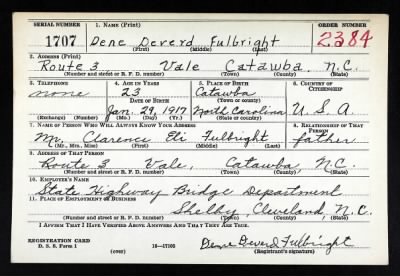 SERIAL NUMBER 1. NAME (Print) ORDER NUMBER
1707 Dene Deverd Fulbright 2384
(First) (Middle) (Last)
2. ADDRESS (Print)
Route 3 Vale Catawba N.C.
(Number and street or R. F. D. number) (Town) (County) (State)
3. TELEPHONE 4. AGE IN YEARS 5. PLACE OF BIRTH 6. COUNTRY OF CITIZENSHIP
none 23 Catawba
DATE OF BIRTH (Town or county)
Jan. 29, 1917 North Carolina U.S.A.
(Exchange) (Number) (Mo.) (Day) (Yr.) (State or country)
7. NAME OF PERSON WHO WILL ALWAYS KNOW YOUR ADDRESS 8. RELATIONSHIP OF THAT PERSON
Mr. Clarence Eli Fulbright father
(Mr., Mrs., Miss) (First) (Middle) (Last)
9. ADDRESS OF THAT PERSON
Route 3 Vale, Catawba N.C.
(Number and street or R. F. D. number) (Town) (County) (State)
10. EMPLOYER'S NAME
State Highway Bridge Department
11. PLACE OF EMPLOYMENT OR BUSINESS
Shelby, Cleveland N.C.
(Number and street or R. F. D. number) (Town) (County) (State)
I AFFIRM THAT I HAVE VERIFIED ABOVE ANSWERS AND THAT THEY ARE TRUE.
REGISTRATION CARD
D. S. S. Form 1 (over) 16—17105
Dene Deverd Fulbright
(Registrant's signature)